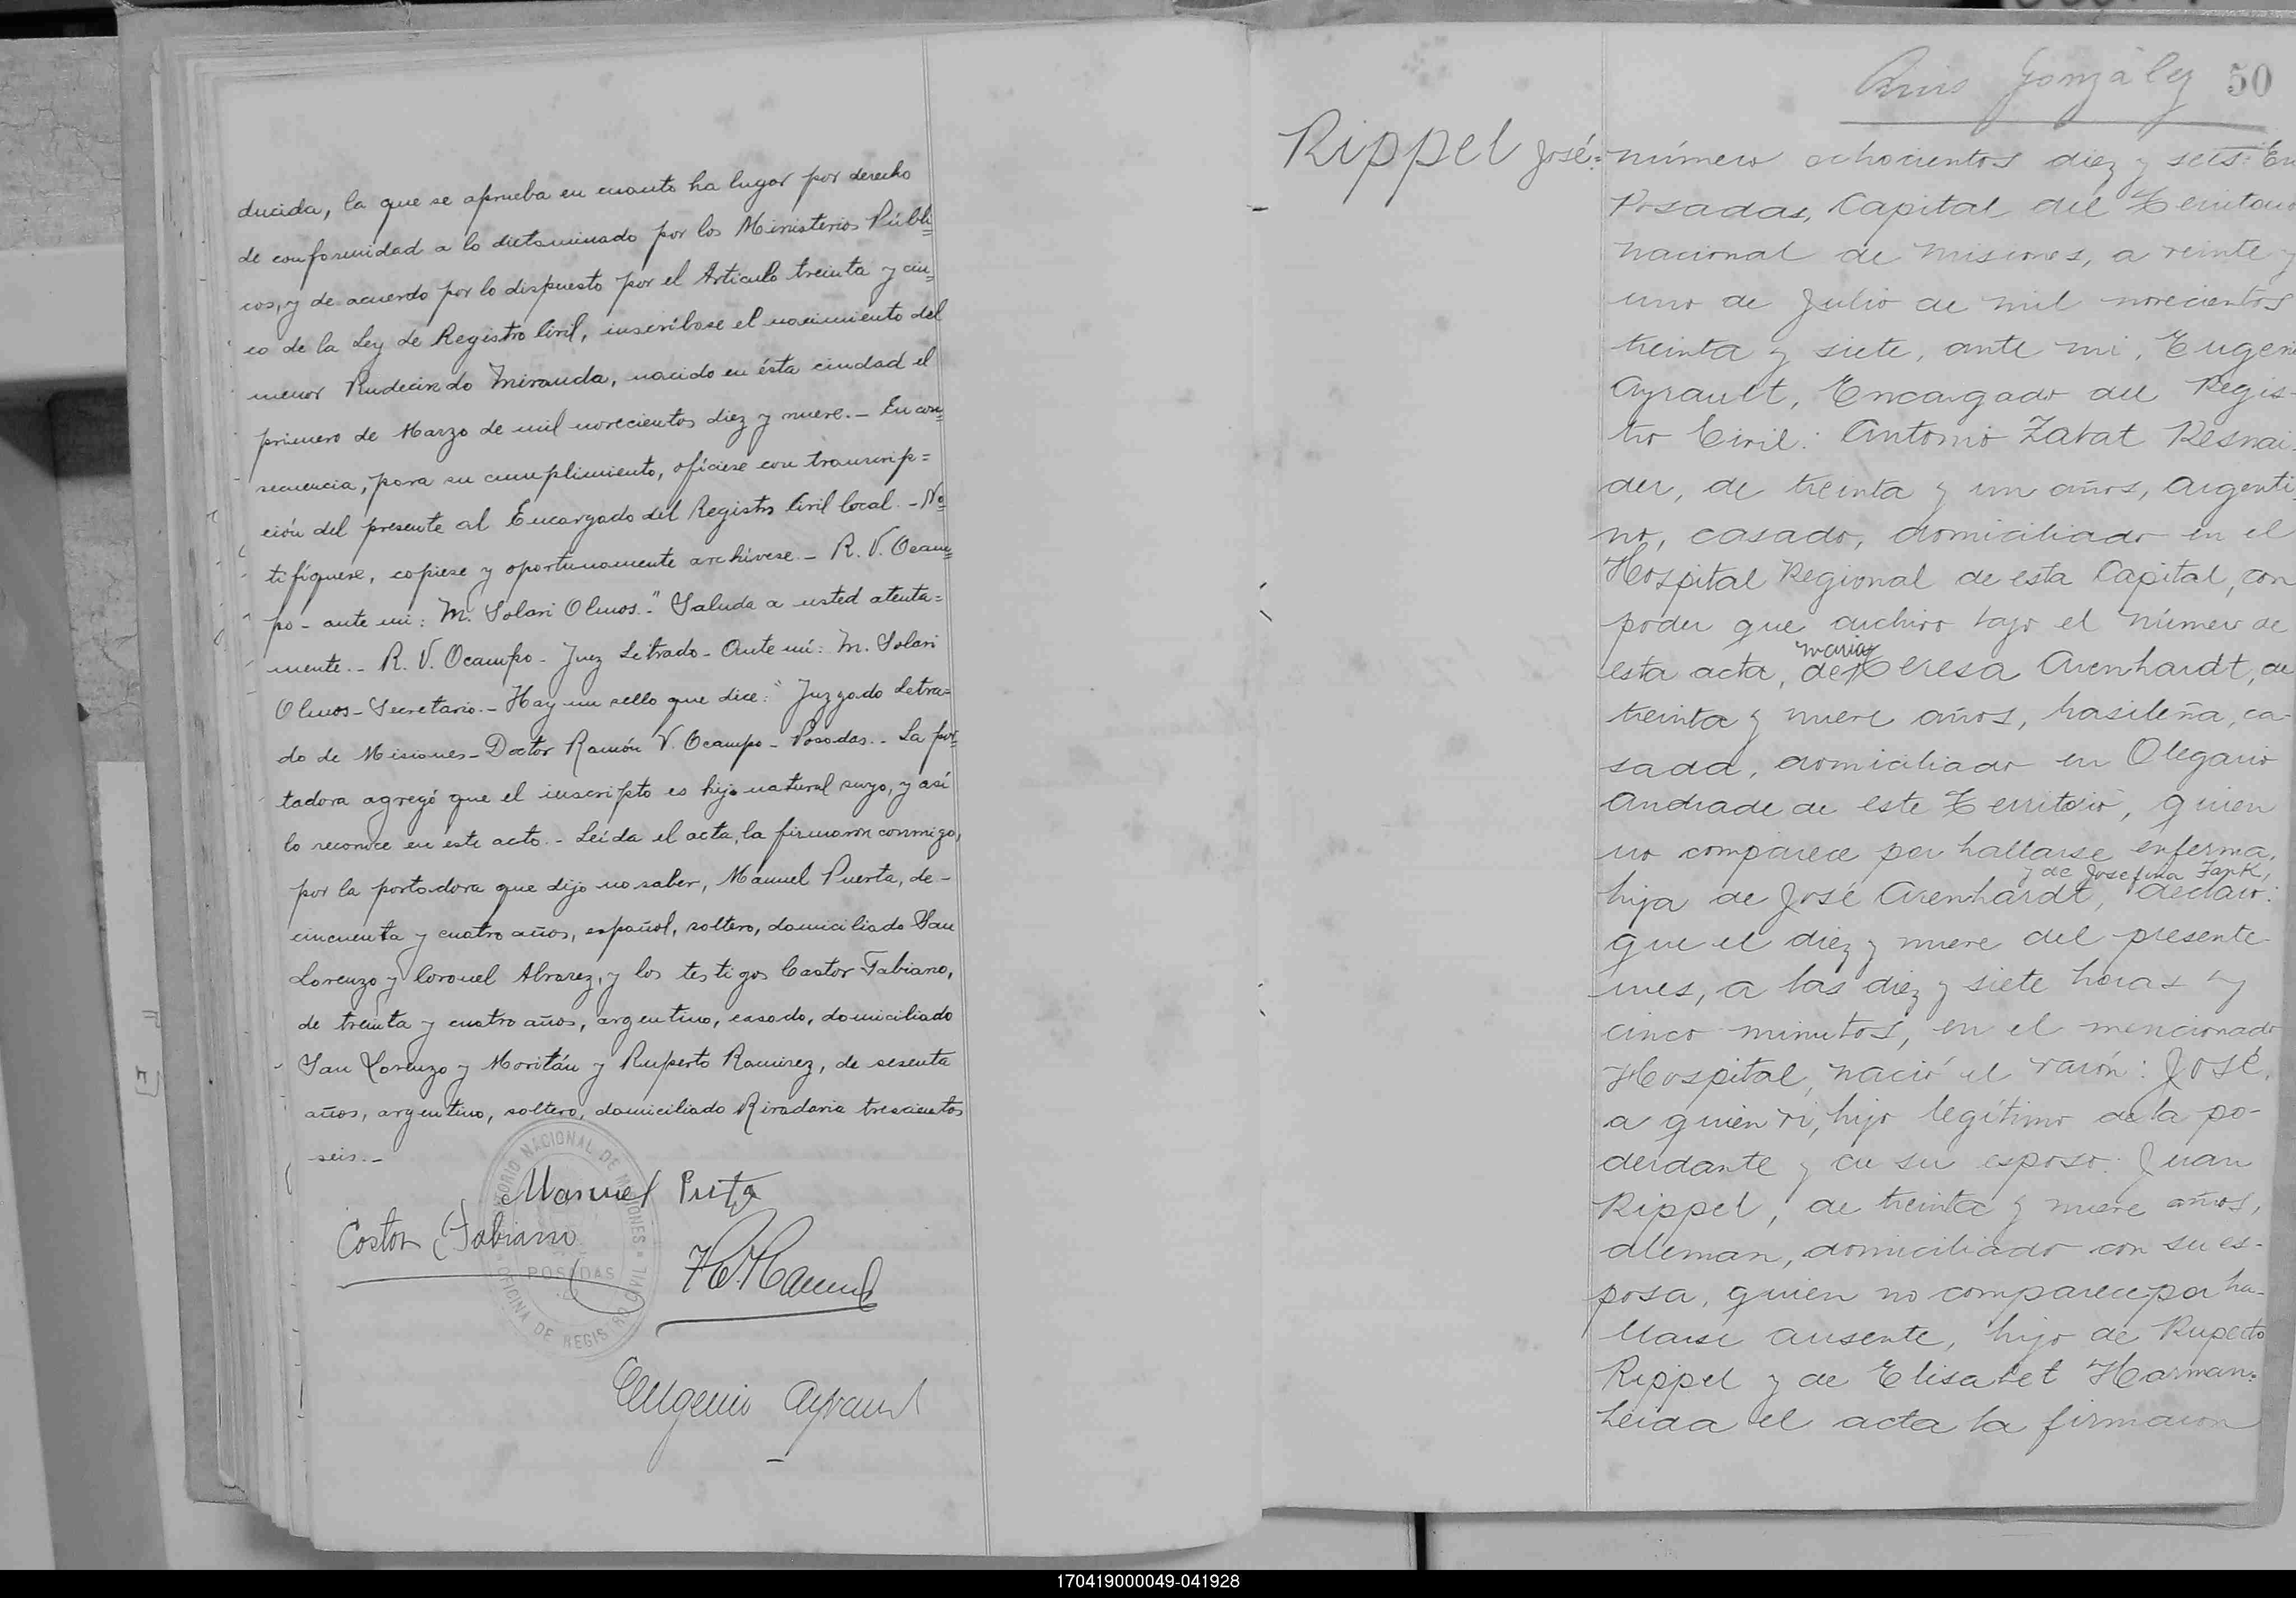 ducida, la que se aprueba en cuanto ha lugar por derecho
de conformidad a lo dictaminado por los Ministerios Públi=
cos, y de acuerdo por lo dispuesto por el Artículo treinta y cin=
co de la Ley de Registro Civil, inscríbase el nacimiento del
menor Rudecindo Miranda, nacido en ésta ciudad el
primero de Marzo de mil novecientos diez y nueve.- En con=
secuencia, para su cumplimiento, ofíciese con transcrip=
ción del presente al Encargado del Registro Civil local.- No=
tifíquese, copiese y oportunamente archívese.- R. V. Ocam=
po- ante mi: M. Solari Olmos.-" Saluda a usted atenta=
mente.- R. V. Ocampo- Juez Letrado- Ante mi: M. Solari
Olmos- Secretario.- Hay un sello que dice: "Juzgado Letra=
do de Misiones- Doctor Ramón V. Ocampo- Posadas.- La por=
tadora agregó que el inscripto es hijo natural suyo, y así
lo reconoce en este acto.- Leída el acta, la firmaron conmigo,
por la portadora que dijo no saber, Manuel Puerta, de-
cincuenta y cuatro años, español, soltero, domiciliado San
Lorenzo y Coronel Alvarez, y los testigos Castor Fabiano,
de treinta y cuatro años, argentino, casado, domiciliado
San Lorenzo y Moritán y Ruperto Ramirez, de sesenta
años, argentino, soltero, domiciliado Rivadavia trescientos
seis.-
TERRITORIO NACIONAL DE MISIONES
POSADAS
OFICINA DE REGISTRO CIVIL
Manuel
Castor Fabiano
Eugenio Ayrault
González 50
Rippel José:
número ochocientos diez y seis: En
Posadas, Capital del Territorio
nacional de Misiones, a veinte y
uno de Julio de mil novecientos
treinta y siete, ante mi, Eugenio
Ayrault, Encargado del Regis-
tro Civil: Antonio Zabat Resnai-
der, de treinta y un años, argenti
no, casado, domiciliado en el
Hospital Regional de esta Capital, con
poder que archivo bajo el número de
maria
esta acta, de Teresa Arenhardt, de
treinta y nueve años, brasileña, ca-
sada, domiciliado en Olegario
Andrade de este Territorio, quien
no comparece por hallarse enferma,
y de Josefina Fank,
hija de José Arenhardt, declaró:
que el diez y nueve del presente
mes, a las diez y siete horas y
cinco minutos, en el mencionado
Hospital, nació el varón: José,
a quien vi, hijo legítimo de la po-
derdante y de su esposo: Juan
Rippel, de treinta y nueve años,
alemán, domiciliado con su es-
posa, quien no comparece por ha-
llarse ausente, hijo de Ruperto
Rippel y de Elisabet Harman:
Leida el acta la firmaron
170419000049-041928